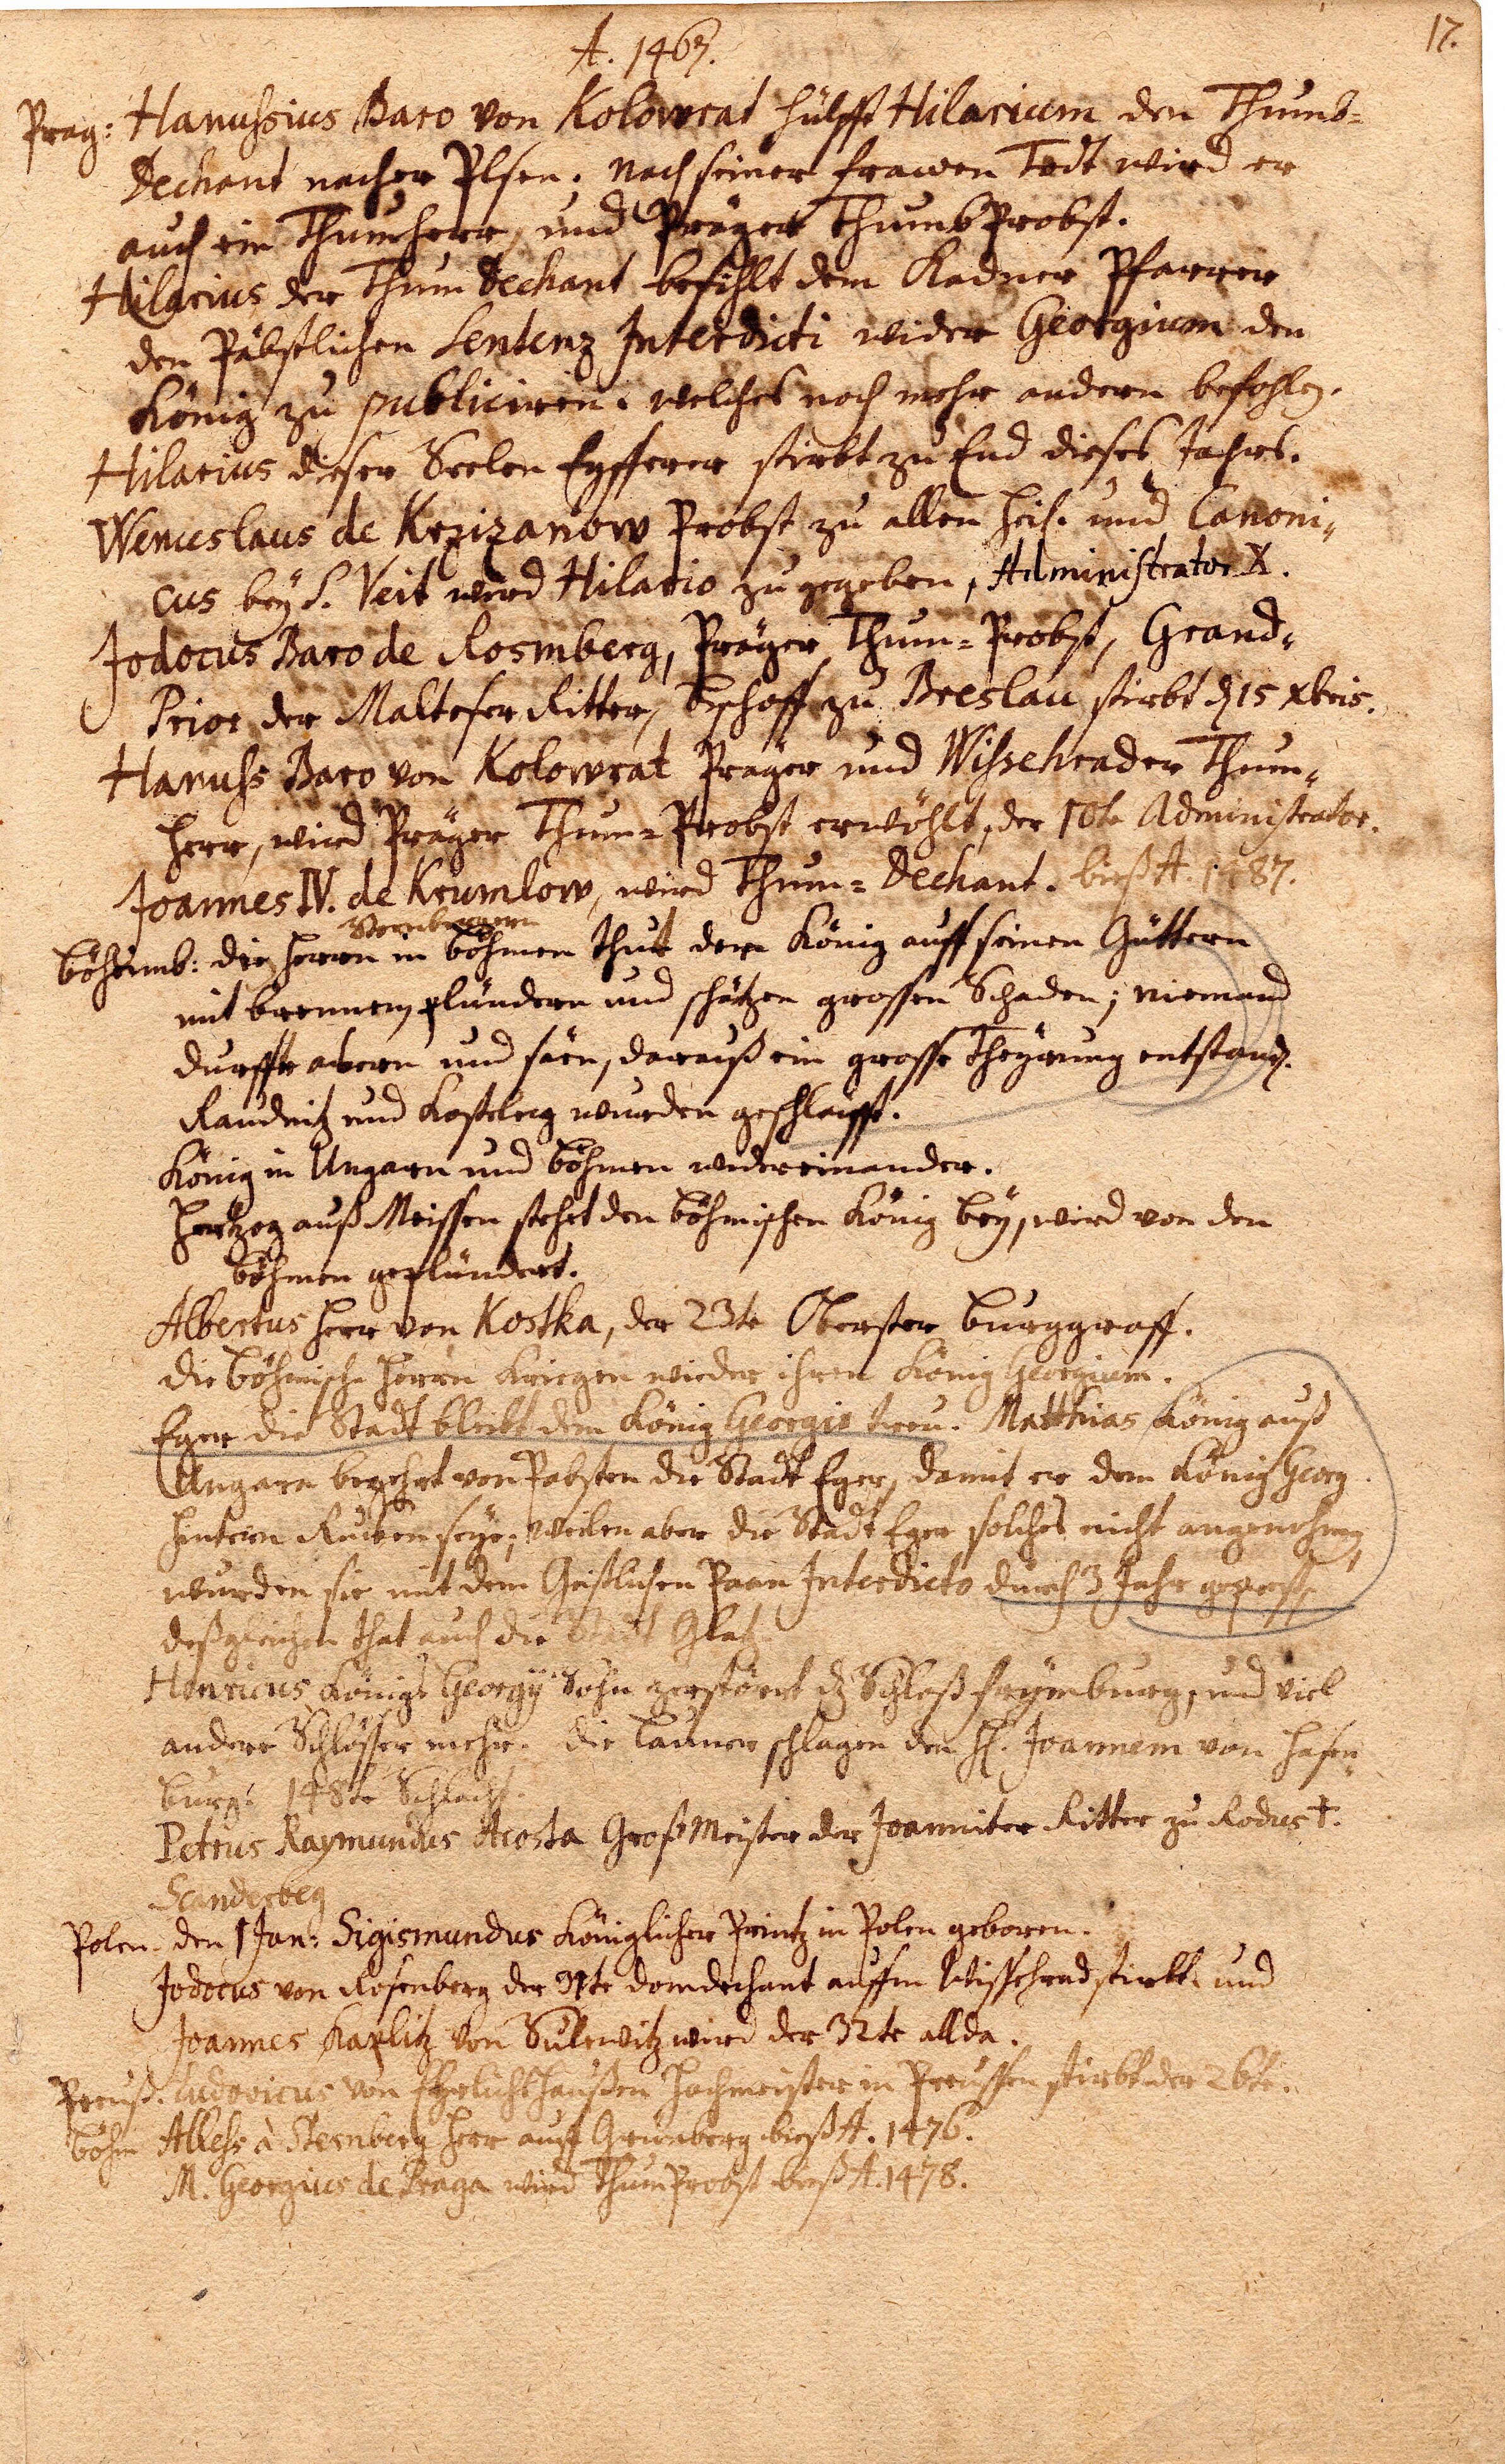 17.
A. 1467.
Prag: Hanussius Baro von Kolowrat hülfft Hilarium den Thumb-
Dechant nacher Plsen. nach seiner frawen Todt wird er
auch ein Thumherr, und Präger ThumbProbst.
Hilarius der Thum Dechant befihlt dem Kadner Pfarrer
den Päbstlichen Sentenz Interdicti wider Georgium den
König zu publiciren. welches noch mehr andern befohlen.
Hilarius dieser Seelen Eyfferer stirbt zu End dieses Jahrs.
Wenceslaus de Krzizanow Probst zu allen Heil. und Canoni-
cus bey S. Veit wird Hilario zu gegeben, Administrator X.
Jodocus Baro de Rosmberg, Präger Thum-Probst, Grand-
Prior der Malteser Ritter, Bischoff zu Breslau stirbt d 15 xbris.
Hanuss Baro von Kolowrat Präger und Wissehrader Thum-
herr, wird Präger Thum-Probst erwöhlt, der 10te Administrator.
Joannes IV. de Krumlow, wird Thum-Dechant. bieß A. 1487.
Sternbergern
Böhmb: die Herrn in Böhmen thut dem König auff seinen Güttern
mit brennen, plündern und schätzen grossen Schaden; niemand
durffte akern und säen, darauß ein grosse Theürung entstand.
Raudnitz und Kosteletz wurden geschleifft.
König in Ungarn und Böhmen widereinander.
Hertzog auß Meissen stehet den Böhmischen König bey, wird von den
Böhmen geplündert.
Albertus Herr von Kostka, der 23te Oberster Burggraff.
die Böhmische Herrn Kriegen wieder ihren König Georgium.
Eger die Stadt bleibt dem König Georgio treu. Matthias König auß
Ungarn begehrt von Pabsten die Stadt Eger, damit er dem König Georg
hintern Rucken seye; weilen aber die Stadt Eger solches nicht angenohmen,
wurden sie mit dem Geistlichen Paan Interdicto durch 3 Jahr geprest,
deßgleichen that auch die Stadt Glatz
Henricus Königs Georgÿ Sohn zerstöret dz Schloß frÿmburg, und viel
andere Schlösser mehr. die Launer schlagen den H. Joannem von Hasen-
burg. 148te Schlacht.
Petrus Raymundus Acosta Groß Meister der Joanniter Ritter zu Rodus †.
Scanderbeg
Polen. den 1 Jan: Sigismundus Königlicher Printz in Polen geboren.
Jodocus von Rosenberg der 31te domdechant auffm Wissehrad stirbt. und
Joannes Kaplitz von Sulewitz wird der 32te allda.
Preuß. Ludovicus von Ehrlichshaußen Hochmeister in Preussen stirbt der 26te.
Böhm Alless à Sternberg Herr auff Grünberg bieß A. 1476.
M. Georgius de Praga wird ThumProbst bieß A. 1478.